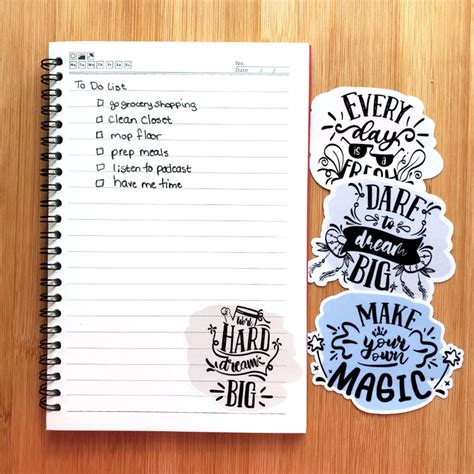 No.
Mo Tu We Th Fr Sa Su
Date / /
To Do List
go grocery shopping
clean closet
mop floor
prep meals
listen to podcast
have me time
work
HARD
dream
BIG
EVERY
day
is a
FRESH
DARE
to
dream
BIG
MAKE
your
own
MAGIC